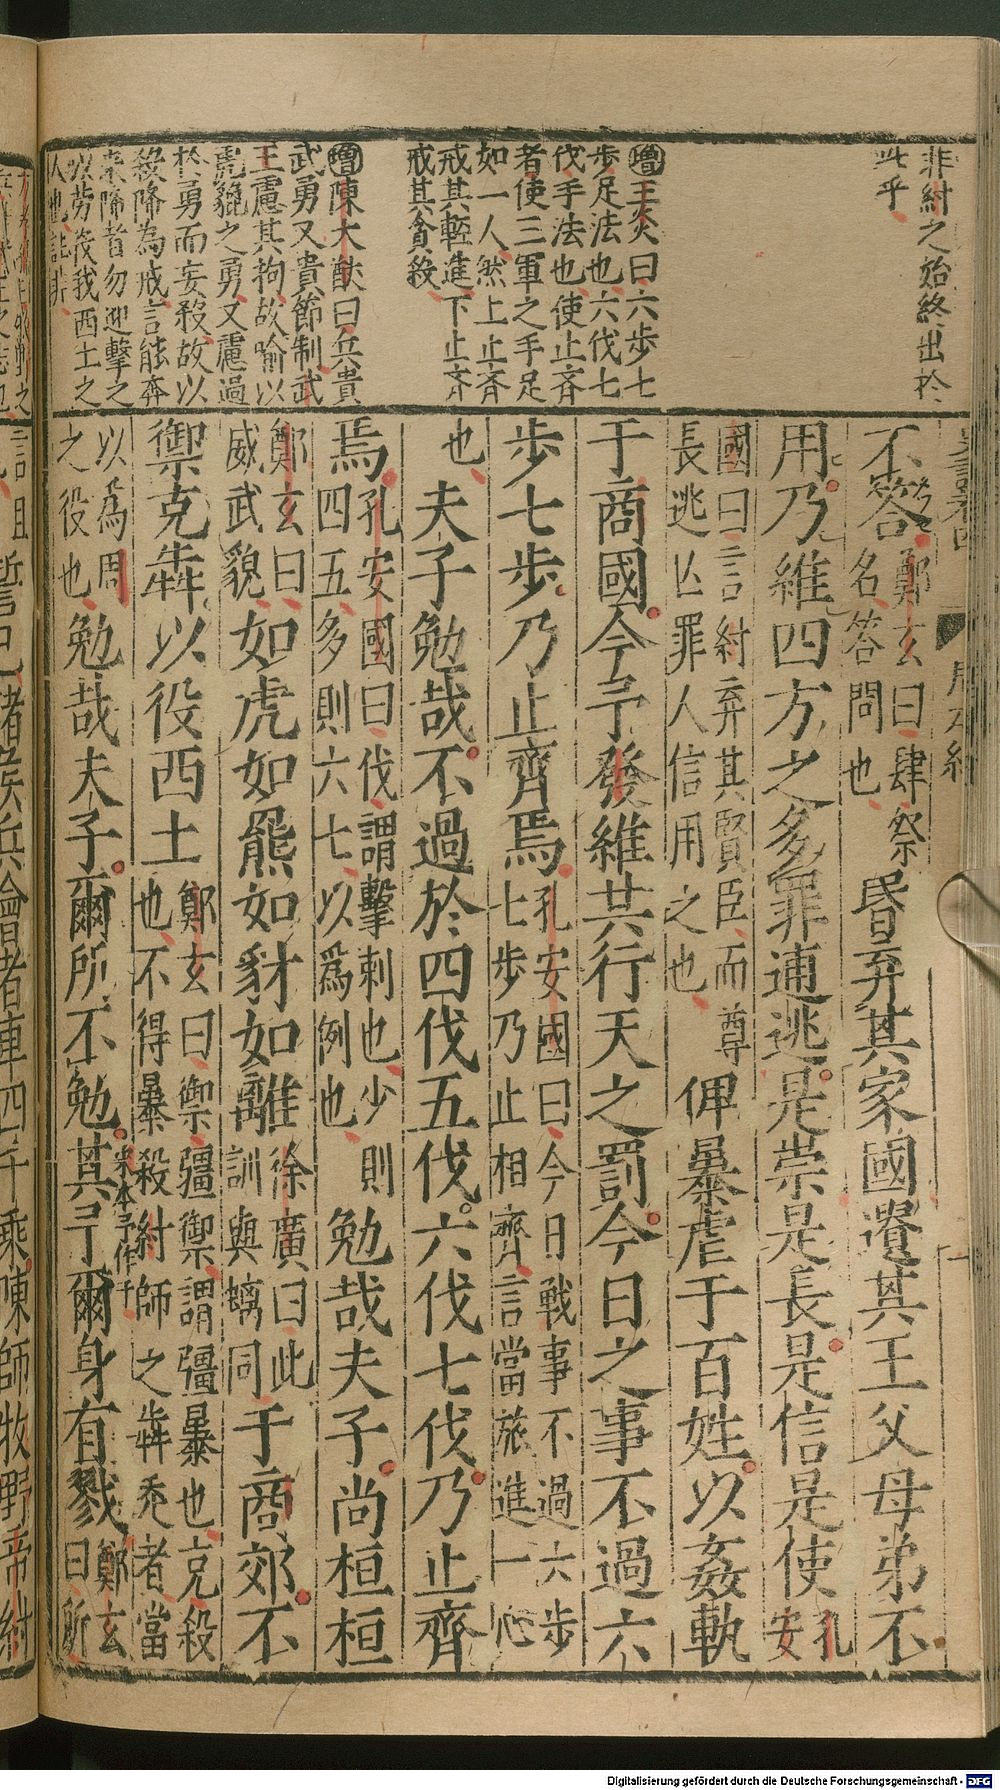 非紂之始終出於
此乎
增王炎曰六步七
步足法也六伐七
伐手法也使止齊
者使三軍之手足
如一人然上止齊
戒其輕進下止齊
戒其貪殺
增陳大猷曰兵貴
武勇又貴節制武
王慮其拘故喻以
虎貔之勇又慮過
於勇而妄殺故以
殺降為戒言能奔
來降者勿迎擊之
以勞役我西土之
人也
不答鄭玄曰肆祭
名答問也昬弃其家國遺其王父母弟不
用乃維四方之多罪逋逃是崇是長是信是使孔
安
國曰言紂弃其賢臣而尊
長逃亾罪人信用之也俾暴虐于百姓以姦軌
于商國今予發維共行天之罰今日之事不過六
步七步乃止齊焉孔安國曰今日戰事不過六步
七步乃止相齊言當旅進一心
也夫子勉哉不過於四伐五伐六伐七伐乃止齊
焉孔安國曰伐謂擊刺也少則
四五多則六七以爲例也勉哉夫子尚桓桓
鄭玄曰
威武貌如虎如羆如豺如離徐廣曰此
訓與螭同于商郊不
禦克犇以役西土鄭玄曰禦彊禦謂彊暴也克殺
也不得暴殺紂師之犇走者當
以為周
之役也勉哉夫子爾所不勉其于爾身有戮鄭玄
曰所
宋本予作于
言且誓已諸侯兵會者車四千乘陳師牧野帝紂
Digitalisierung gefördert durch die Deutsche Forschungsgemeinschaft - DFG